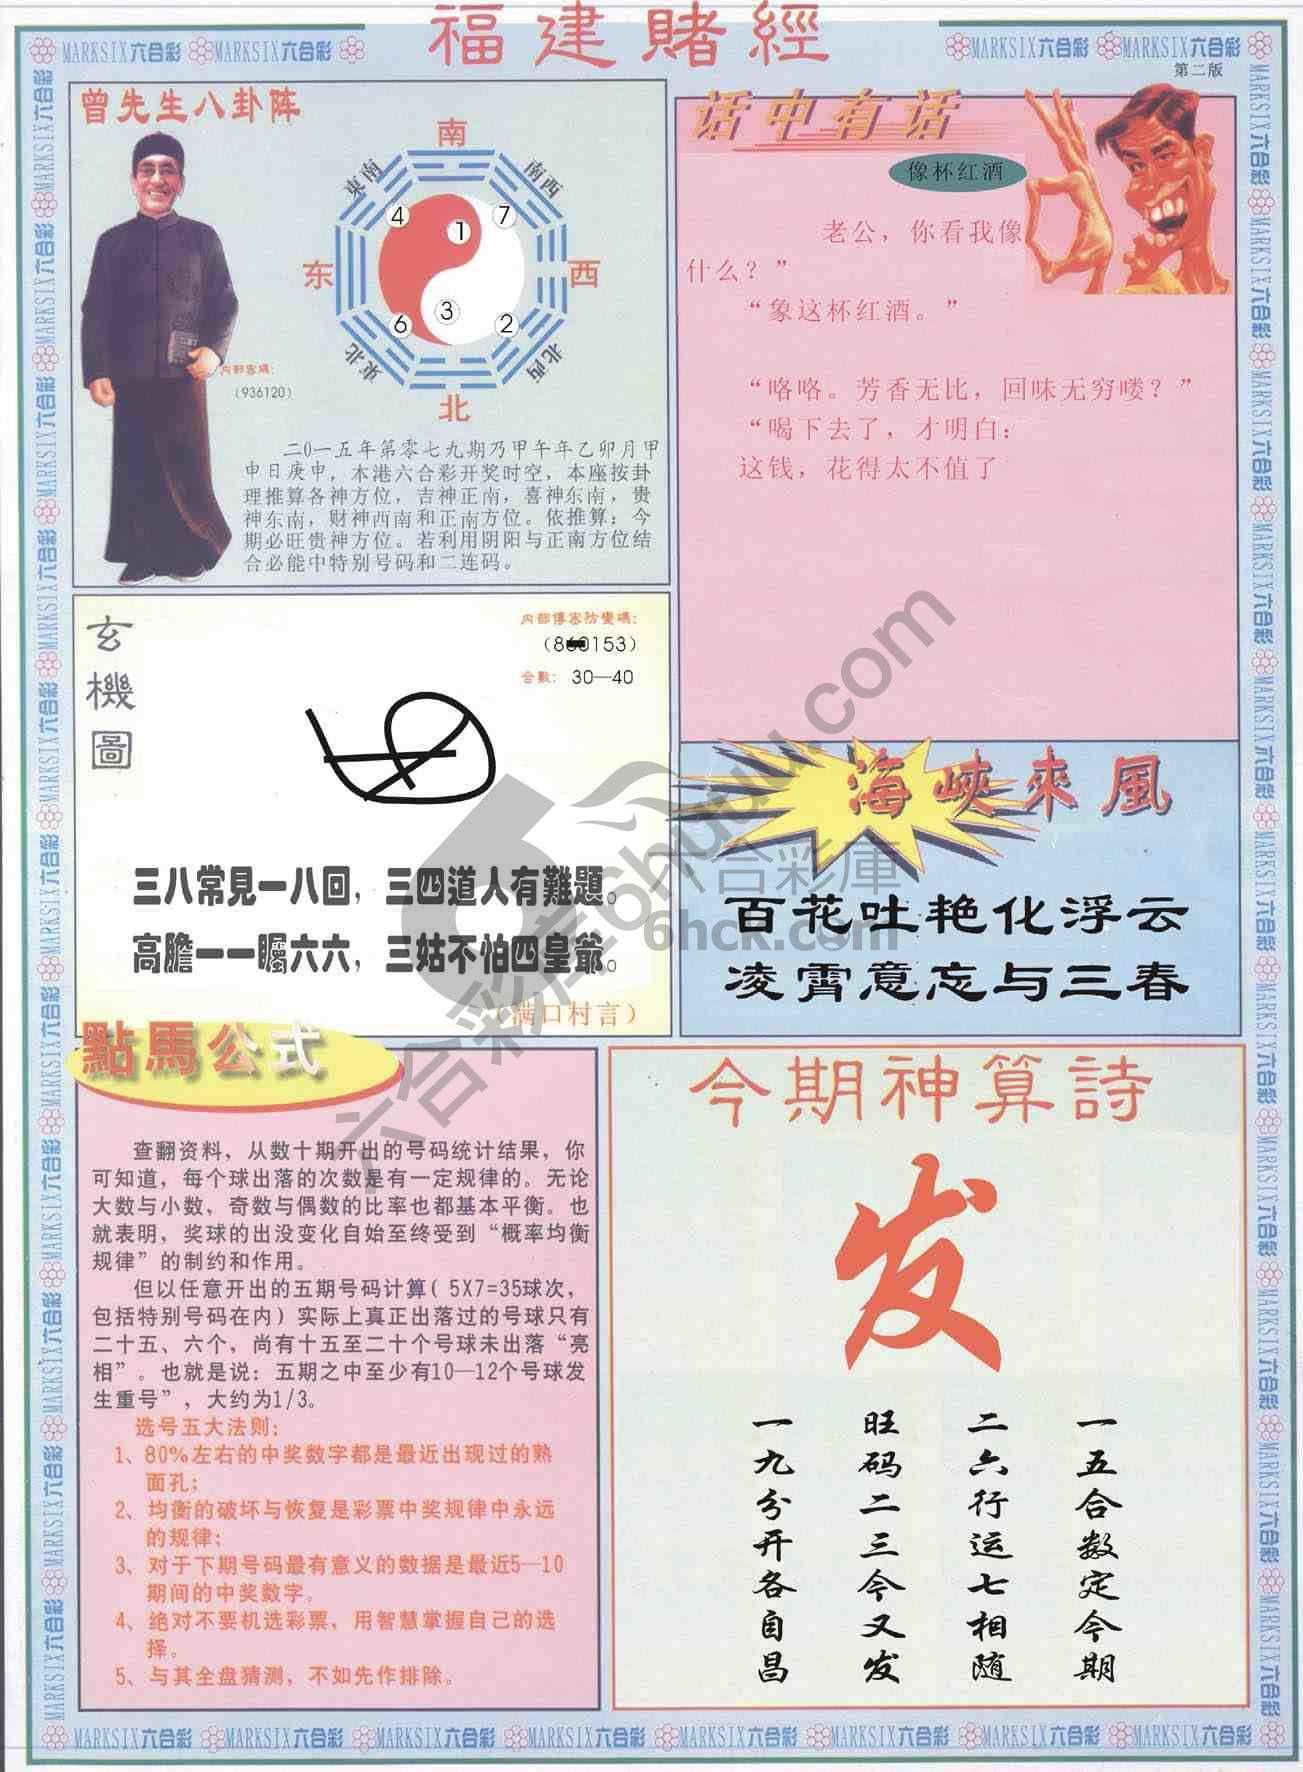 福建賭經
MARKSIX六合彩 MARKSIX六合彩
MARKSIX六合彩 MARKSIX六合彩
第二版
曾先生八卦阵
南
東南
南西
4
1
7
东
西
6
3
2
東北
北西
北
内部密碼：
（936120）
二0一五年第零七九期乃甲午年乙卯月甲
申日庚申，本港六合彩开奖时空，本座按卦
理推算各神方位，吉神正南，喜神东南，贵
神东南，财神西南和正南方位。依推算：今
期必旺贵神方位。若利用阴阳与正南方位结
合必能中特别号码和二连码。
话中有话
像杯红酒
老公，你看我像
什么？”
“象这杯红酒。”
“咯咯。芳香无比，回味无穷喽？”
“喝下去了，才明白：
这钱，花得太不值了
玄機圖
内部傳密防變碼：
0153）
合數： 30—40
三八常見一八回，三四道人有難題。
高膽一一矚六六，三姑不怕四皇爺。
（满口村言）
海峽來風
百花吐艳化浮云
凌霄意忘与三春
點馬公式
查翻资料，从数十期开出的号码统计结果，你
可知道，每个球出落的次数是有一定规律的。无论
大数与小数，奇数与偶数的比率也都基本平衡。也
就表明，奖球的出没变化自始至终受到“概率均衡
规律”的制约和作用。
但以任意开出的五期号码计算（5X7=35球次，
包括特别号码在内）实际上真正出落过的号球只有
二十五、六个，尚有十五至二十个号球未出落“亮
相”。也就是说：五期之中至少有10—12个号球发
生重号”，大约为1/3。
选号五大法则：
1、80%左右的中奖数字都是最近出现过的熟
面孔；
2、均衡的破坏与恢复是彩票中奖规律中永远
的规律；
3、对于下期号码最有意义的数据是最近5—10
期间的中奖数字。
4、绝对不要机选彩票，用智慧掌握自己的选
择。
5、与其全盘猜测，不如先作排除。
今期神算詩
发
一五合数定今期
二六行运七相随
旺码二三今又发
一九分开各自昌
六合彩庫
6hck.com
MARKSIX六合彩 MARKSIX六合彩 MARKSIX六合彩 MARKSIX六合彩 MARKSIX六合彩 MARKSIX六合彩 MARKSIX六合彩 MARKSIX六合彩